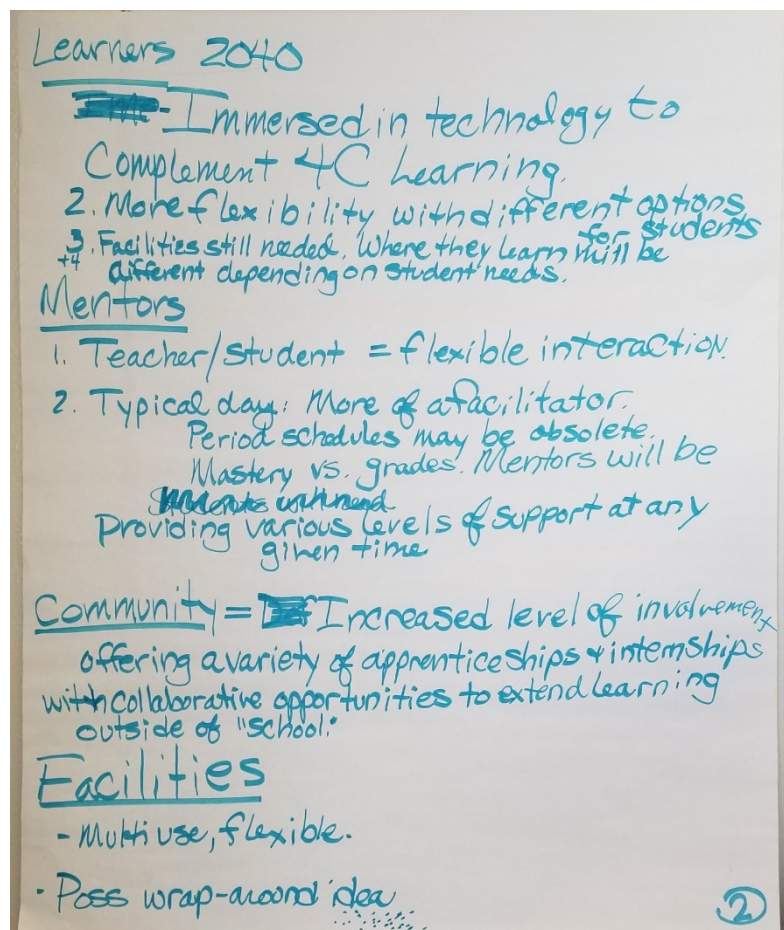 Learners 2040
- Immersed in technology to
Complement 4C Learning.
2. More flexibility with different options
for students
3. Facilities still needed. Where they learn will be
+4 different depending on student needs.
Mentors
1. Teacher/student = flexible interaction.
2. Typical day: More of a facilitator.
Period schedules may be obsolete.
Mastery vs. grades. Mentors will be
Providing various levels of support at any
given time
Community = Increased level of involvement
offering a variety of apprenticeships & internships
with collaborative opportunities to extend learning
outside of "school."
Facilities
- Multi use, flexible.
- Poss wrap-around idea
2